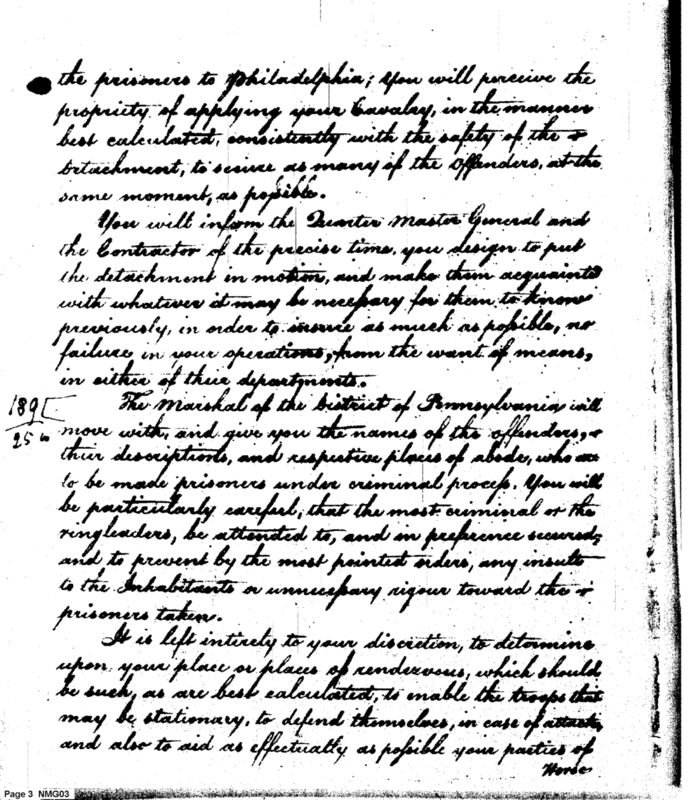 the prisoners to Philadelphia; You will perceive the
propriety of applying your Cavalry, in the manner
best calculated, consistently with the safety of the
Detachment, to secure as many of the Offenders, at the
same moment, as possible.
You will inform the Quarter Master General and
the Contractor of the precise time, you design to put
the detachment in motion, and make them acquainted
with whatever it may be necessary for them to know
previously, in order to insure as much as possible, no
failure in your operations, from the want of means,
in either of their departments.
The Marshal of the District of Pennsylvania will
move with, and give you the names of the offenders,
their descriptions, and respective places of abode, who are
to be made prisoners under criminal process. You will
be particularly careful, that the most criminal or the
ringleaders, be attended to, and in preference secured;
and to prevent by the most pointed orders, any insult
to the Inhabitants or unnecessary rigour toward the
prisoners taken.
It is left intirely to your discretion, to determine
upon your place or places of rendezvous, which should
be such, as are best calculated, to enable the troops that
may be stationary, to defend themselves, in case of attack,
and also to aid as effectually as possible your parties of
Horse
189
25
Page 3 NMG03